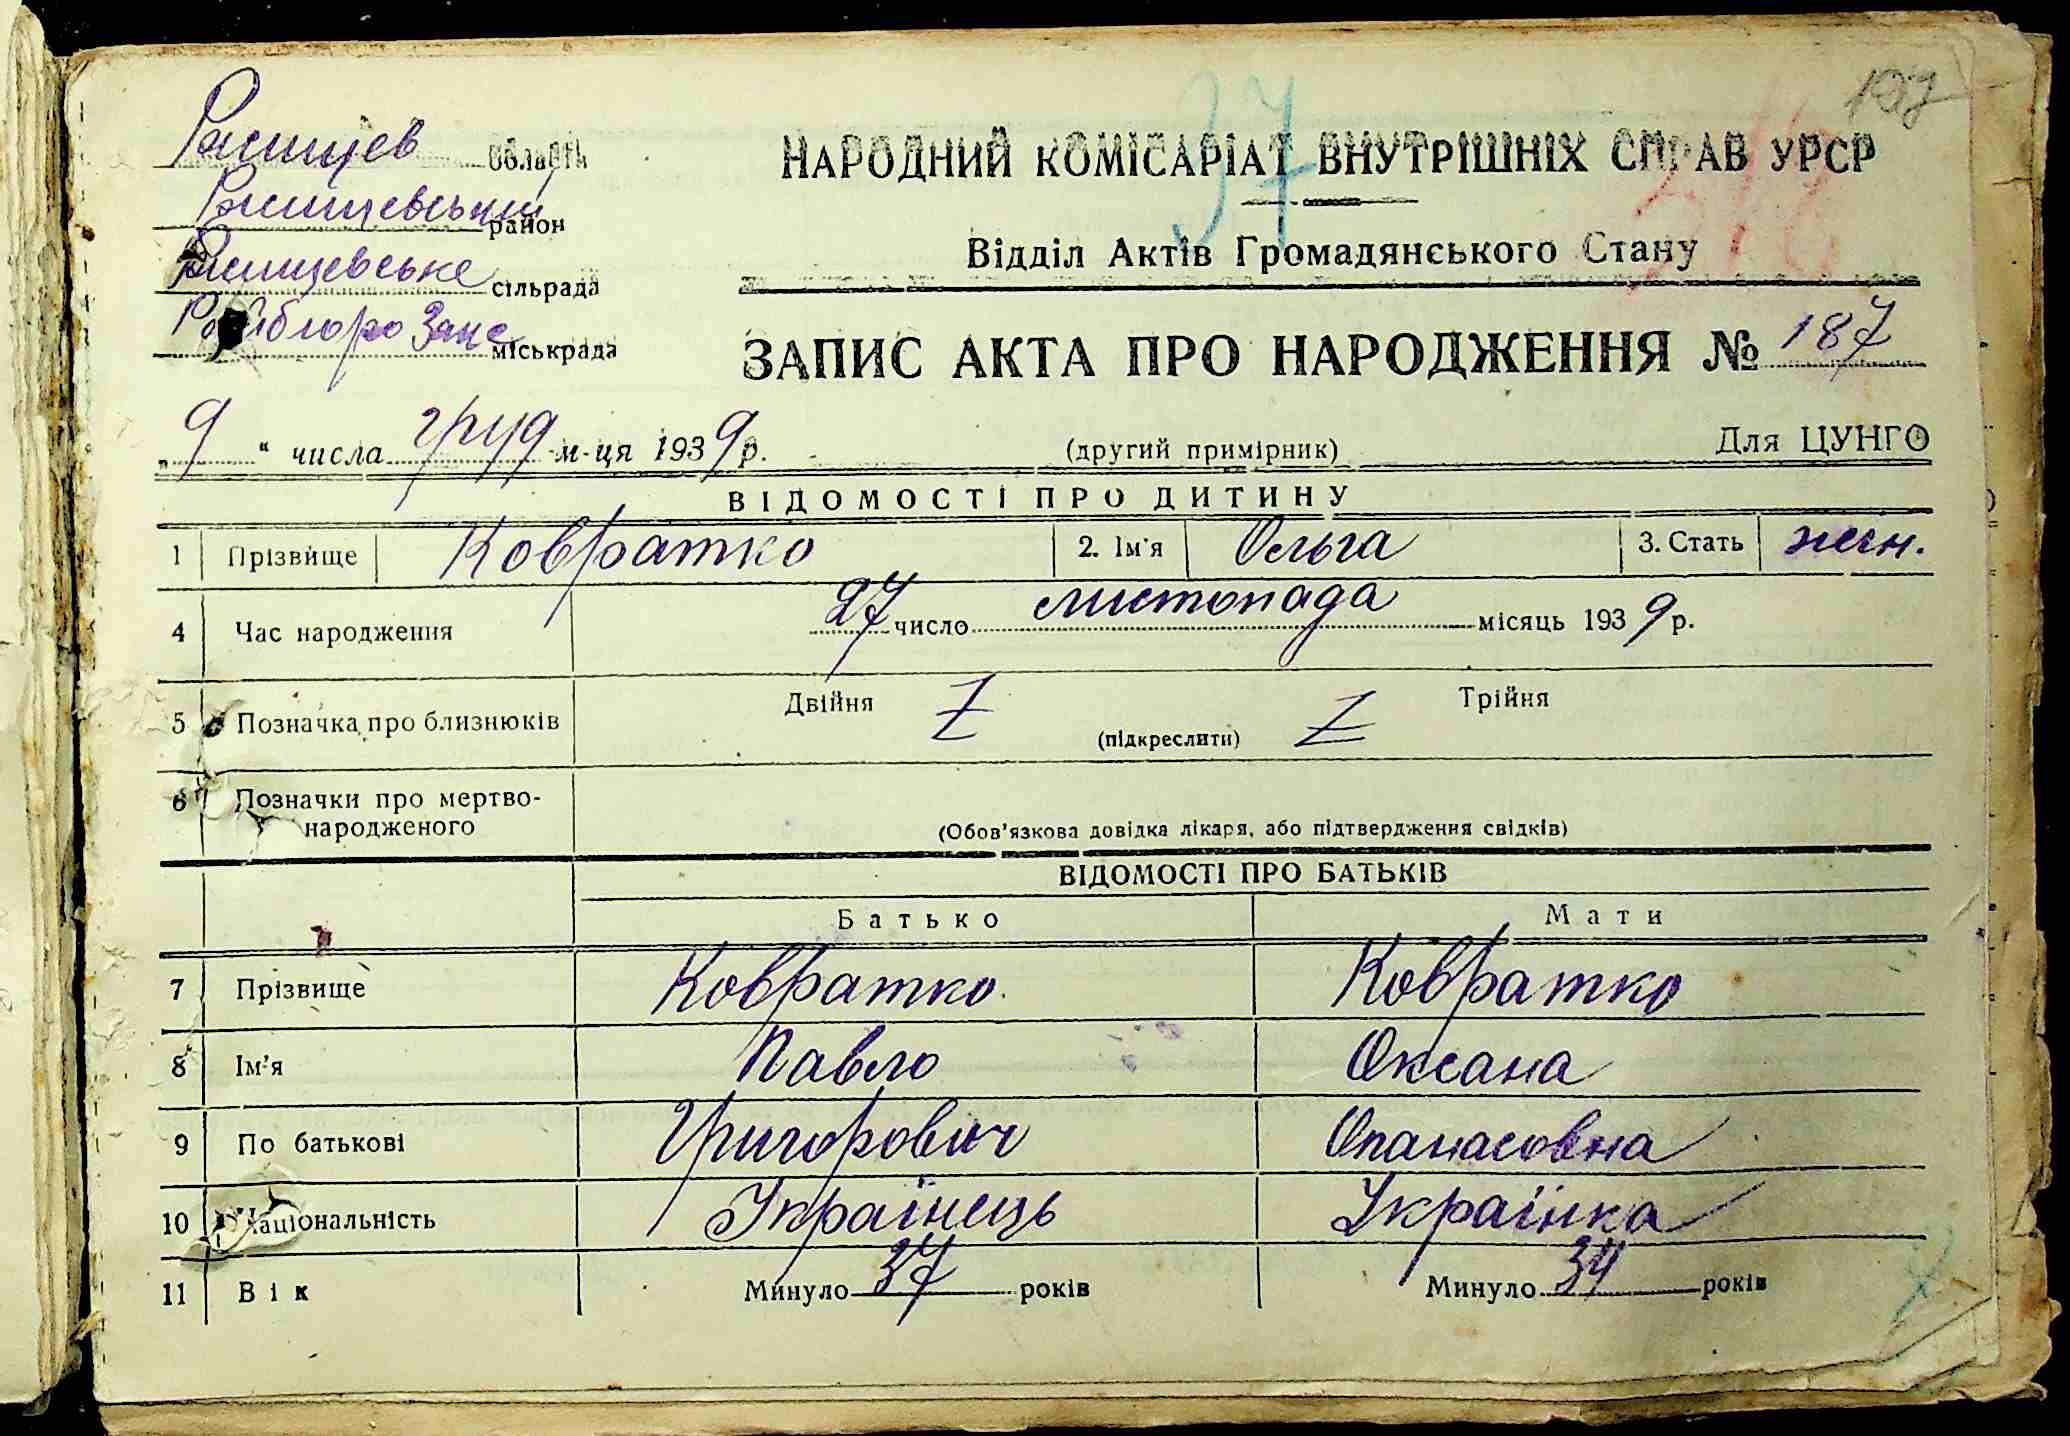 область
район
сільрада
міськрада
Райбюро Загс
187
37
НАРОДНИЙ КОМІСАРІАТ ВНУТРІШНІХ СПРАВ УРСР
Відділ Актів Громадянського Стану
ЗАПИС АКТА ПРО НАРОДЖЕННЯ № 187
„9“ числа груд м-ця 1939 р.
(другий примірник)
Для ЦУНГО
ВІДОМОСТІ ПРО ДИТИНУ
1 Прізвище Ковратко 2. Ім'я Ольга 3. Стать жен.
4 Час народження 27 число листопада місяць 1939 р.
5 Позначка про близнюків Двійня Z (підкреслити) Z Трійня
6 Позначки про мертво-
народженого (Обов'язкова довідка лікаря, або підтвердження свідків)
ВІДОМОСТІ ПРО БАТЬКІВ
Батько Мати
7 Прізвище Ковратко Ковратко
8 Ім'я Павло Оксана
9 По батькові Григорович Опанасовна
10 Національність Українець Українка
11 Вік Минуло 37 років Минуло 34 років